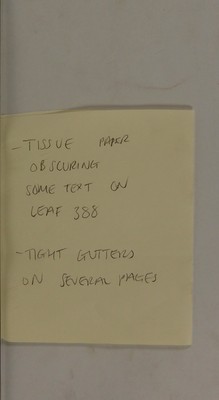 - TISSUE PAPER
OBSCURING
SOME TEXT ON
LEAF 388
- TIGHT GUTTERS
ON SEVERAL PAGES